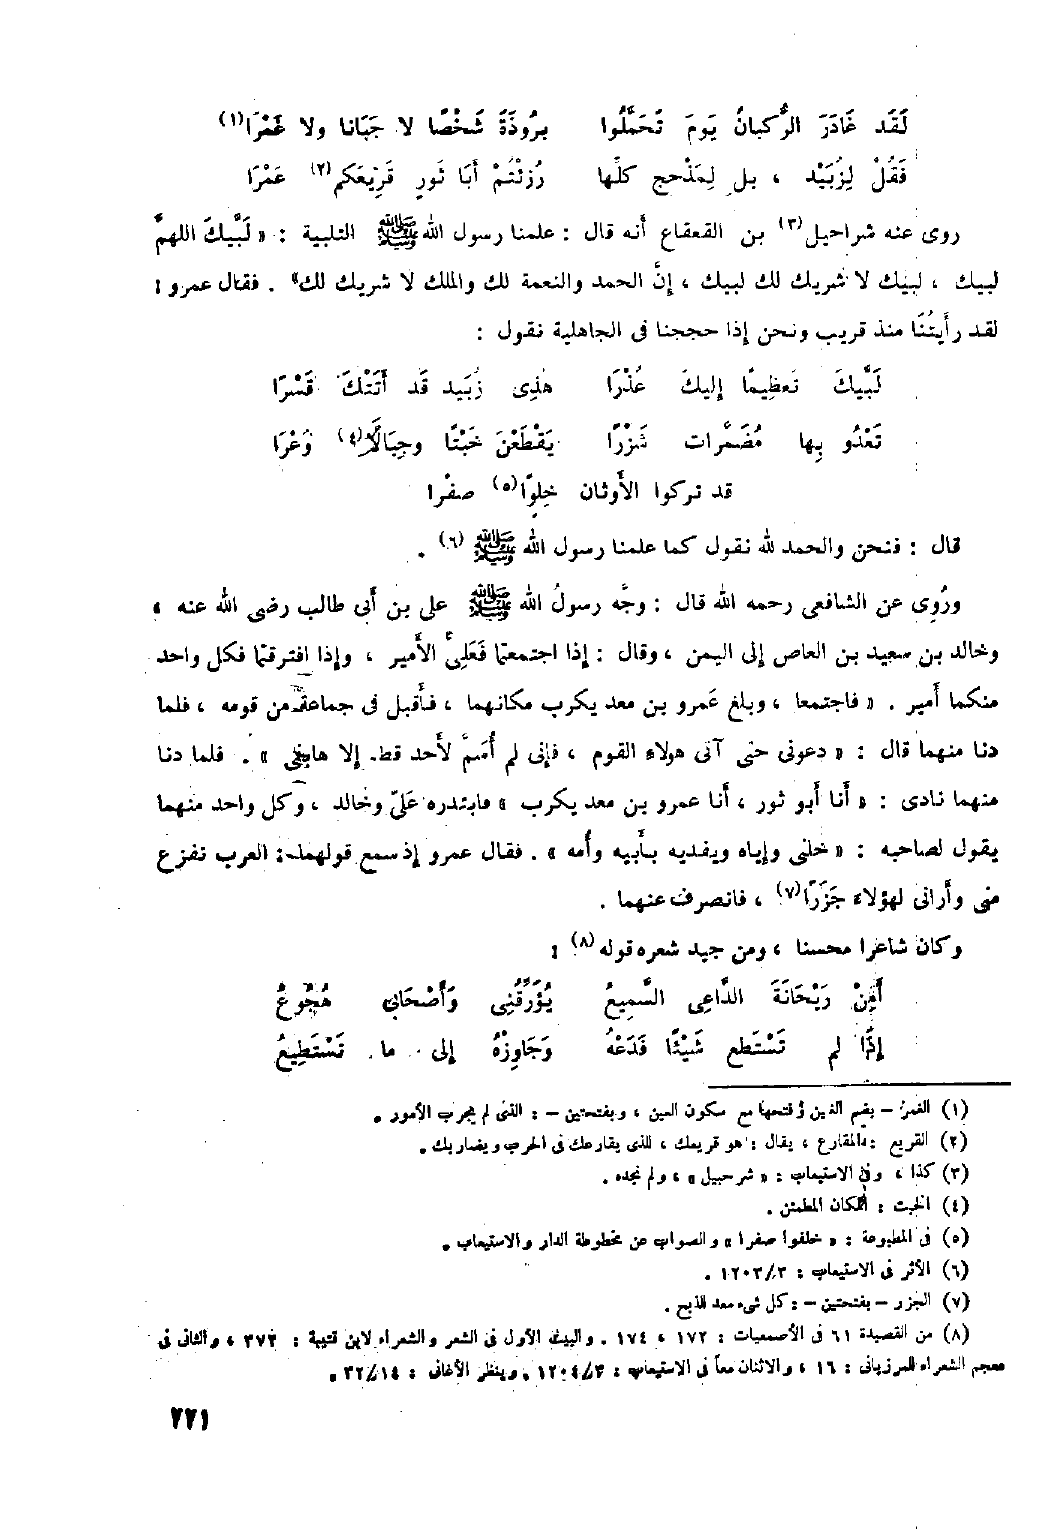 لَقَد غَادَرَ الرُّكبانُ يَومَ تَحَمَّلُوا   بِرُوذَةَ شَخْصًا لا جَبَانا ولا غَمْرَا(١)
فَقُلْ لِزُبَيْد ، بل لِمَذْحِج كلِّها   رُزئتُمْ أبَا ثَورٍ قَرِيعَكم(٢) عَمْرَا
روى عنه شراحيل(٣) بن القعقاع أنه قال : علمنا رسول الله ﷺ التلبية : « لَبَّيكَ اللهمَّ
لبيك ، لبيك لا شريك لك لبيك ، إنَّ الحمد والنعمة لك والملك لا شريك لك» . فقال عمرو :
لقد رأيتُنَا منذ قريب ونحن إذا حججنا فى الجاهلية نقول :
لَبَّيكَ تَعظِيمًا إليكَ عُذْرَا   هٰذِى زُبَيد قَد أتَتْكَ قَسْرَا
تَعْدُو بِها مُضَمَّرات شَزْرًا   يَقْطَعْنَ خَبْتًا وجِبَالًا(٤) وَعْرَا
قد تركوا الأوثان خِلوًا(٥) صفْرا
قال : فنحن والحمد لله نقول كما علمنا رسول الله ﷺ (٦) .
ورُوِى عن الشافعى رحمه الله قال : وجَّه رسولُ الله ﷺ على بن أبى طالب رضى الله عنه ،
وخالد بن سعيد بن العاص إلى اليمن ، وقال : إذا اجتمعتما فَعَلِىٌّ الأمير ، وإذا افترقتما فكل واحد
منكما أمير . « فاجتمعا ، وبلغ عَمرو بن معد يكرب مكانهما ، فأقبل فى جماعة من قومه ، فلما
دنا منهما قال : « دعونى حتى آتى هؤلاء القوم ، فإنى لم أُسَمَّ لأحد قط. إلا هابنى » . فلما دنا
منهما نادى : « أنا أبو ثور ، أنا عمرو بن معد يكرب » فابتدره علىّ وخالد ، وكل واحد منهما
يقول لصاحبه : « خلنى وإياه ويفديه بأبيه وأمه » . فقال عمرو إذ سمع قولهما : العرب تفزع
منى وأرانى لهؤلاء جَزَرًا(٧) ، فانصرف عنهما .
وكان شاعرا محسنا ، ومن جيد شعره قوله(٨) :
أمِنْ رَيْحَانَةَ الدَّاعِى السَّمِيعُ   يُؤَرِّقُنِى وَأَصْحَابى هُجُوعُ
إذَا لم تَسْتَطع شَيْئًا فَدَعْهُ   وَجَاوِزْهُ إلى ما تَسْتَطِيعُ
(١) الغمر – بضم الغين وفتحها مع سكون الميم ، وبفتحتين – : الذى لم يجرب الأمور .
(٢) القريع : المقارع ، يقال : هو قريعك ، للذى يقارعك فى الحرب ويضاربك .
(٣) كذا ، وفى الاستيعاب : « شرحبيل » ، ولم نجده .
(٤) الخبت : المكان المطمئن .
(٥) فى المطبوعة : « خلفوا صفرا » والصواب عن مخطوطة الدار والاستيعاب .
(٦) الأثر فى الاستيعاب : ١٢٠٣/٣ .
(٧) الجزر – بفتحتين – : كل شىء معد للذبح .
(٨) من القصيدة ٦١ فى الأصمعيات : ١٧٢ ، ١٧٤ . والبيت الأول فى الشعر والشعراء لابن قتيبة : ٣٧٢ ، والثانى فى
معجم الشعراء للمرزبانى : ١٦ ، والاثنان معاً فى الاستيعاب : ١٢٠٤/٣ . وينظر الأغانى : ٣٢/١٤ .
٢٢١